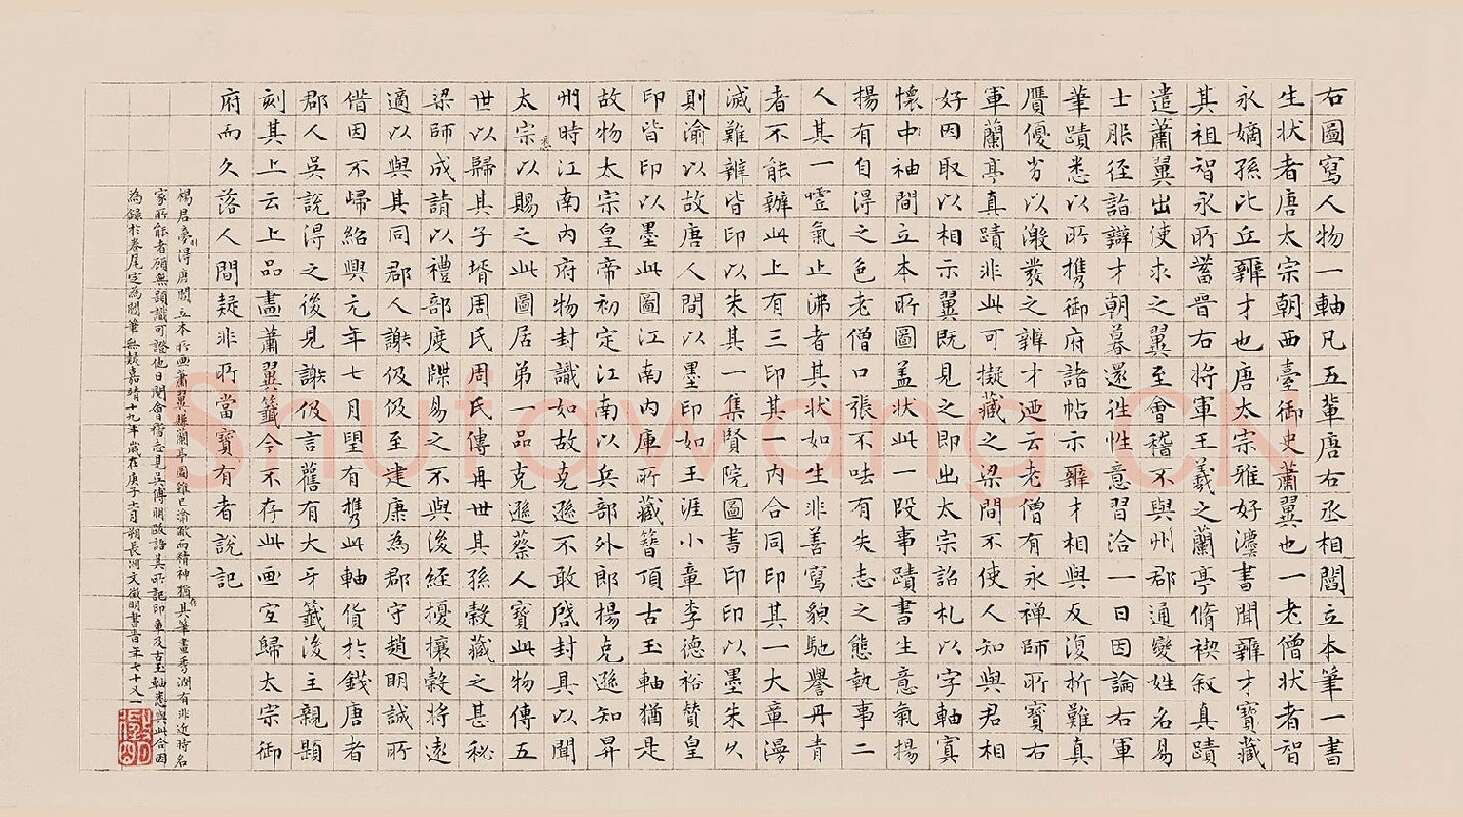 右圖寫人物一軸凡五輩唐右丞相閻立本筆一書
生狀者唐太宗朝西臺御史蕭翼也一老僧狀者智
永嫡孫比丘辯才也唐太宗雅好灋書聞辯才寶藏
其祖智永所蓄晉右將軍王羲之蘭亭脩禊敘真蹟
遣蕭翼出使求之翼至會稽不與州郡通變姓名易
士服徑詣辯才朝暮還徃性意習洽一日因論右軍
筆蹟悉以所攜御府諸帖示辯才相與反復析難真
贋優劣以激發之辯才迺云老僧有永禪師所寶右
軍蘭亭真蹟非此可擬藏之梁間不使人知與君相
好因取以相示翼既見之即出太宗詔札以字軸寘
懷中袖間立本所圖盖狀此一段事蹟書生意氣揚
揚有自得之色老僧口張不呿有失志之態執事二
人其一噓氣止沸者其狀如生非善寫貌馳譽丹青
者不能辦此上有三印其一內合同印其一大章漫
滅難辨皆印以朱其一集賢院圖書印印以墨朱久
則渝以故唐人間以墨印如王涯小章李德裕贊皇
印皆印以墨此圖江南內庫所藏簪頂古玉軸猶是
故物太宗皇帝初定江南以兵部外郎楊克遜知昇
州時江南內府物封識如故克遜不敢啓封具以聞
太宗悉以賜之此圖居弟一品克遜蔡人寶此物傳五
世以歸其子壻周氏周氏傳再世其孫榖藏之甚秘
梁師成請以禮部度牒易之不與後經擾攘榖將遠
適以與其同郡人謝伋伋至建康為郡守趙明誠所
偕因不歸紹興元年七月望有攜此軸貨於錢唐者
郡人吳說得之後見謝伋言舊有大牙籤後主親題
刻其上云上品畫蕭翼籤今不存此画宜歸太宗御
府而久落人間疑非所當寶有者說記
楊君夢得唐閻立本所画蕭翼賺蘭亭圖雖已渝敝而精神猶具筆畫秀潤有非近時名
家所能者顧無題識可證他日閱會稽志見吳傅朋跋語其所記印章及古玉軸悉與此合因
為錄於卷尾定為閻筆無疑嘉靖十九年歲在庚子十二月朔長洲文徵明書時年七十又一